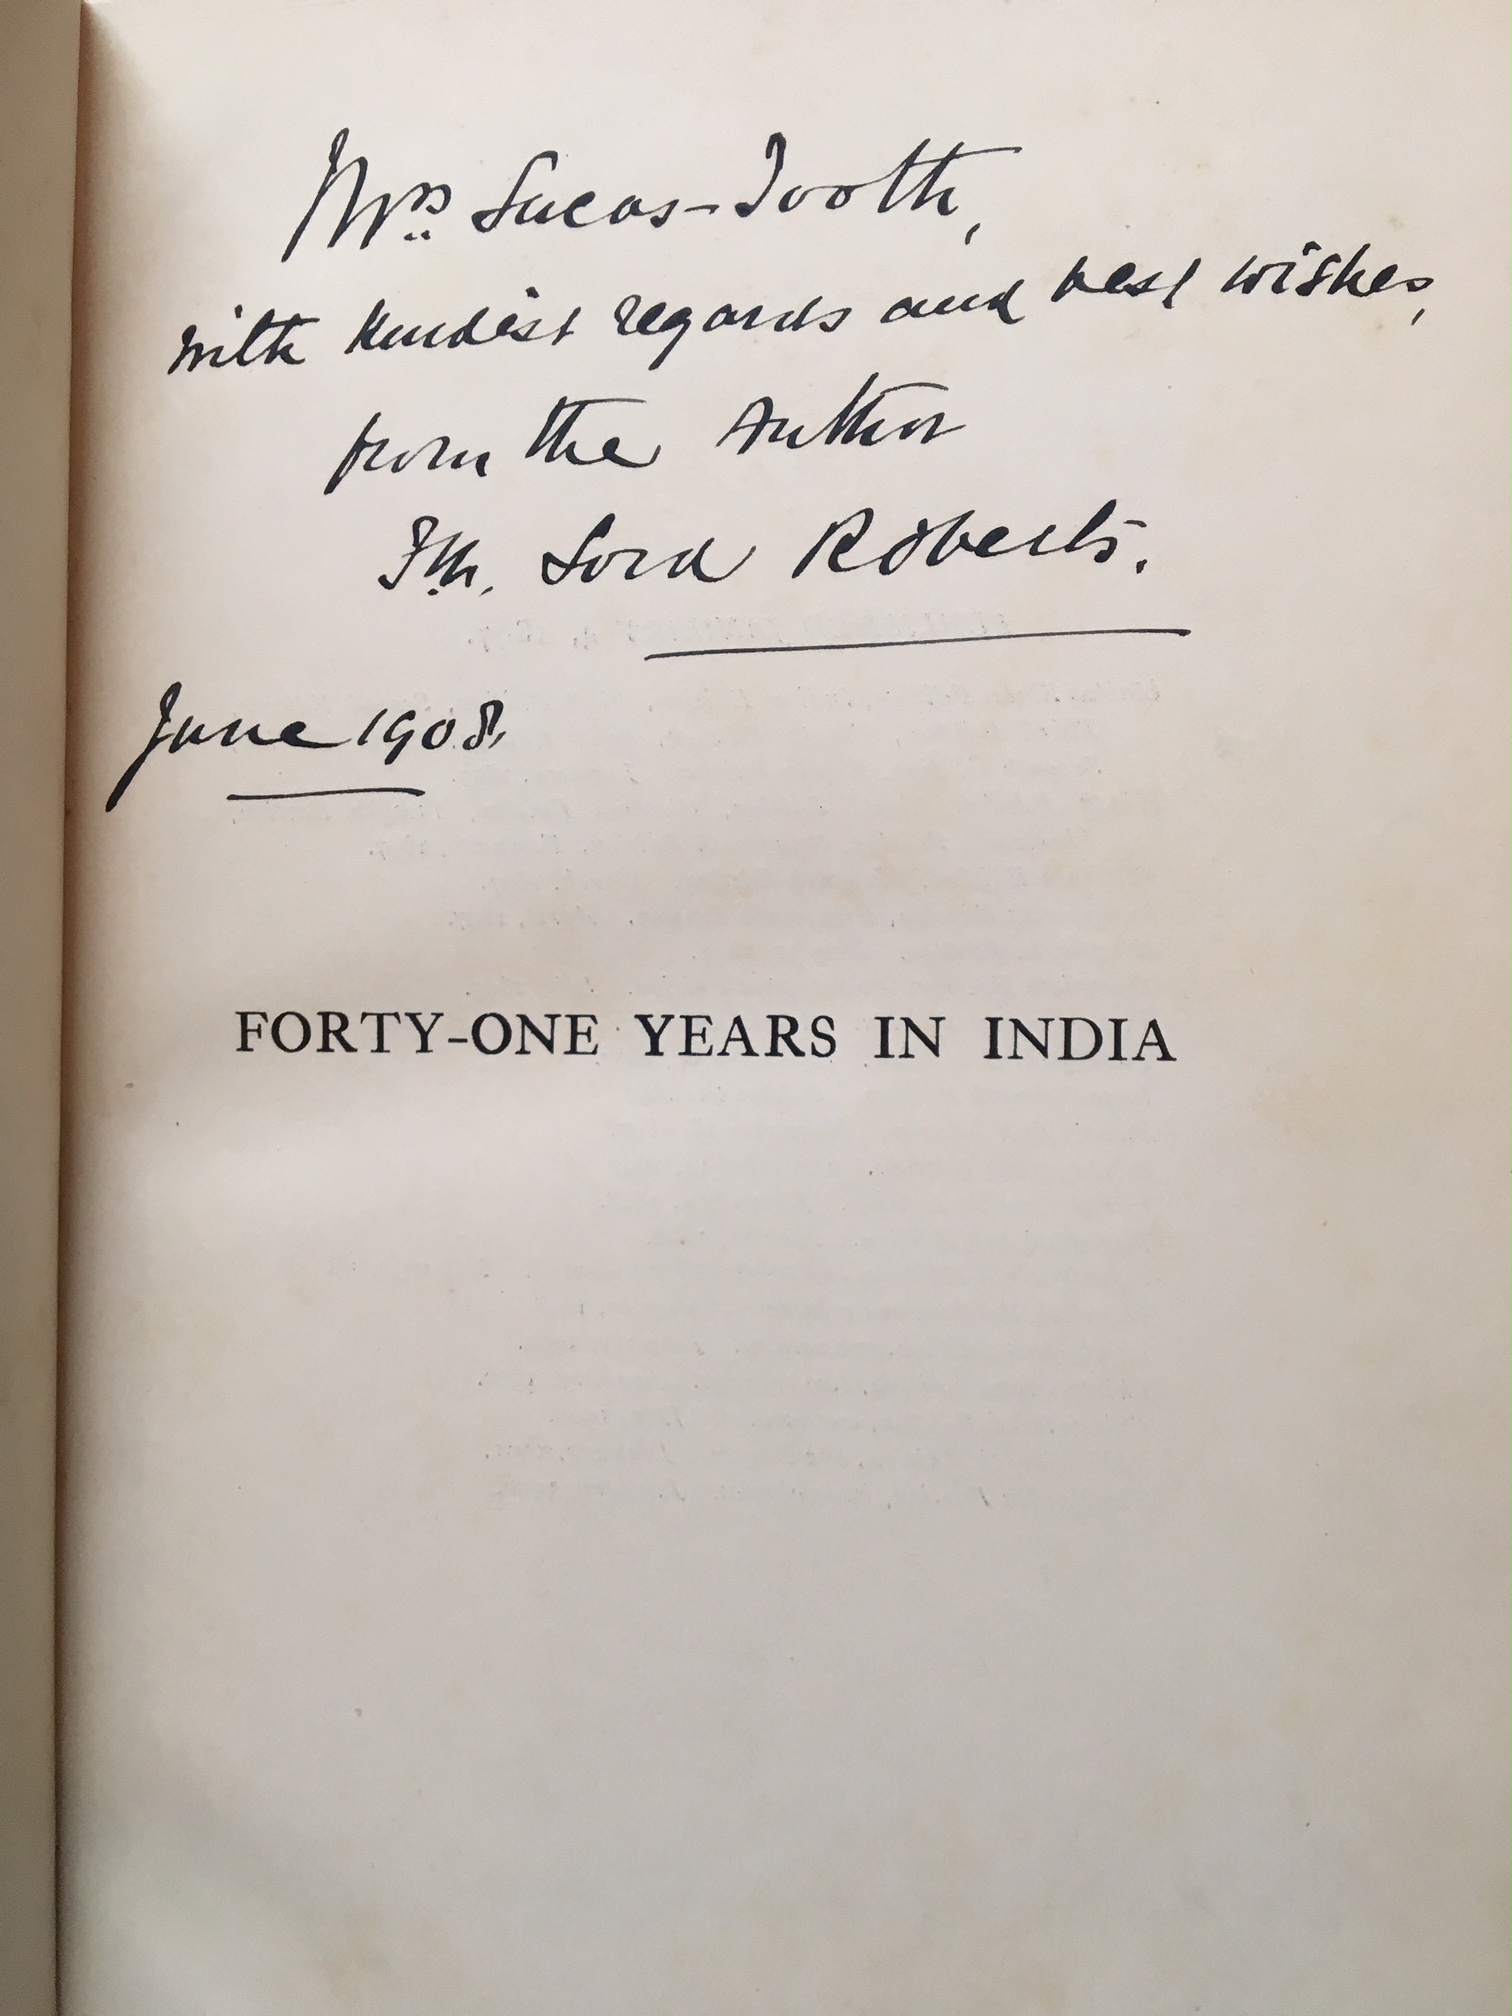 Mrs Lucas-Tooth,
with kindest regards and best wishes,
from the Author
F.M. Lord Roberts.
June 1908.
FORTY-ONE YEARS IN INDIA